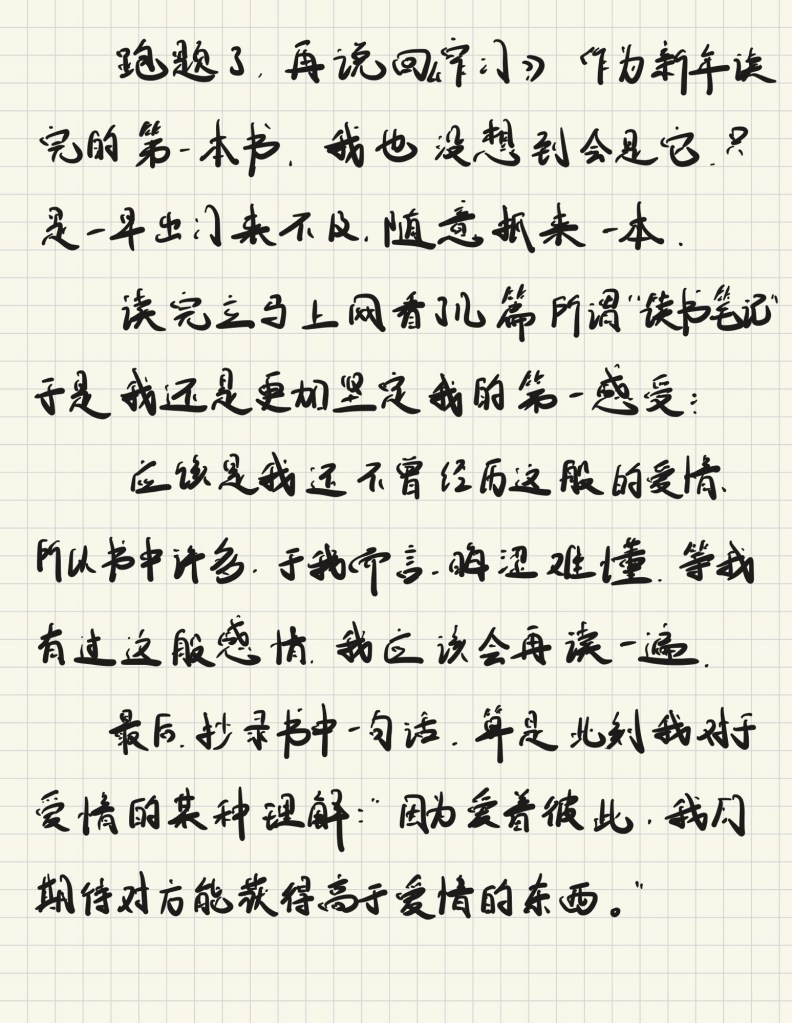 跑题了，再说回《窄门》 作为新年读
完的第一本书，我也没想到会是它，只
是一早出门来不及，随意抓来一本．
读完立马上网看了几篇所谓“读书笔记”
于是我还是更加坚定我的第一感受：
应该是我还不曾经历这般的爱情、
所以书中许多，于我而言，晦涩难懂．等我
有过这般感情，我应该会再读一遍．
最后，抄录书中一句话．算是此刻我对于
爱情的某种理解：“因为爱着彼此，我们
期待对方能获得高于爱情的东西。”